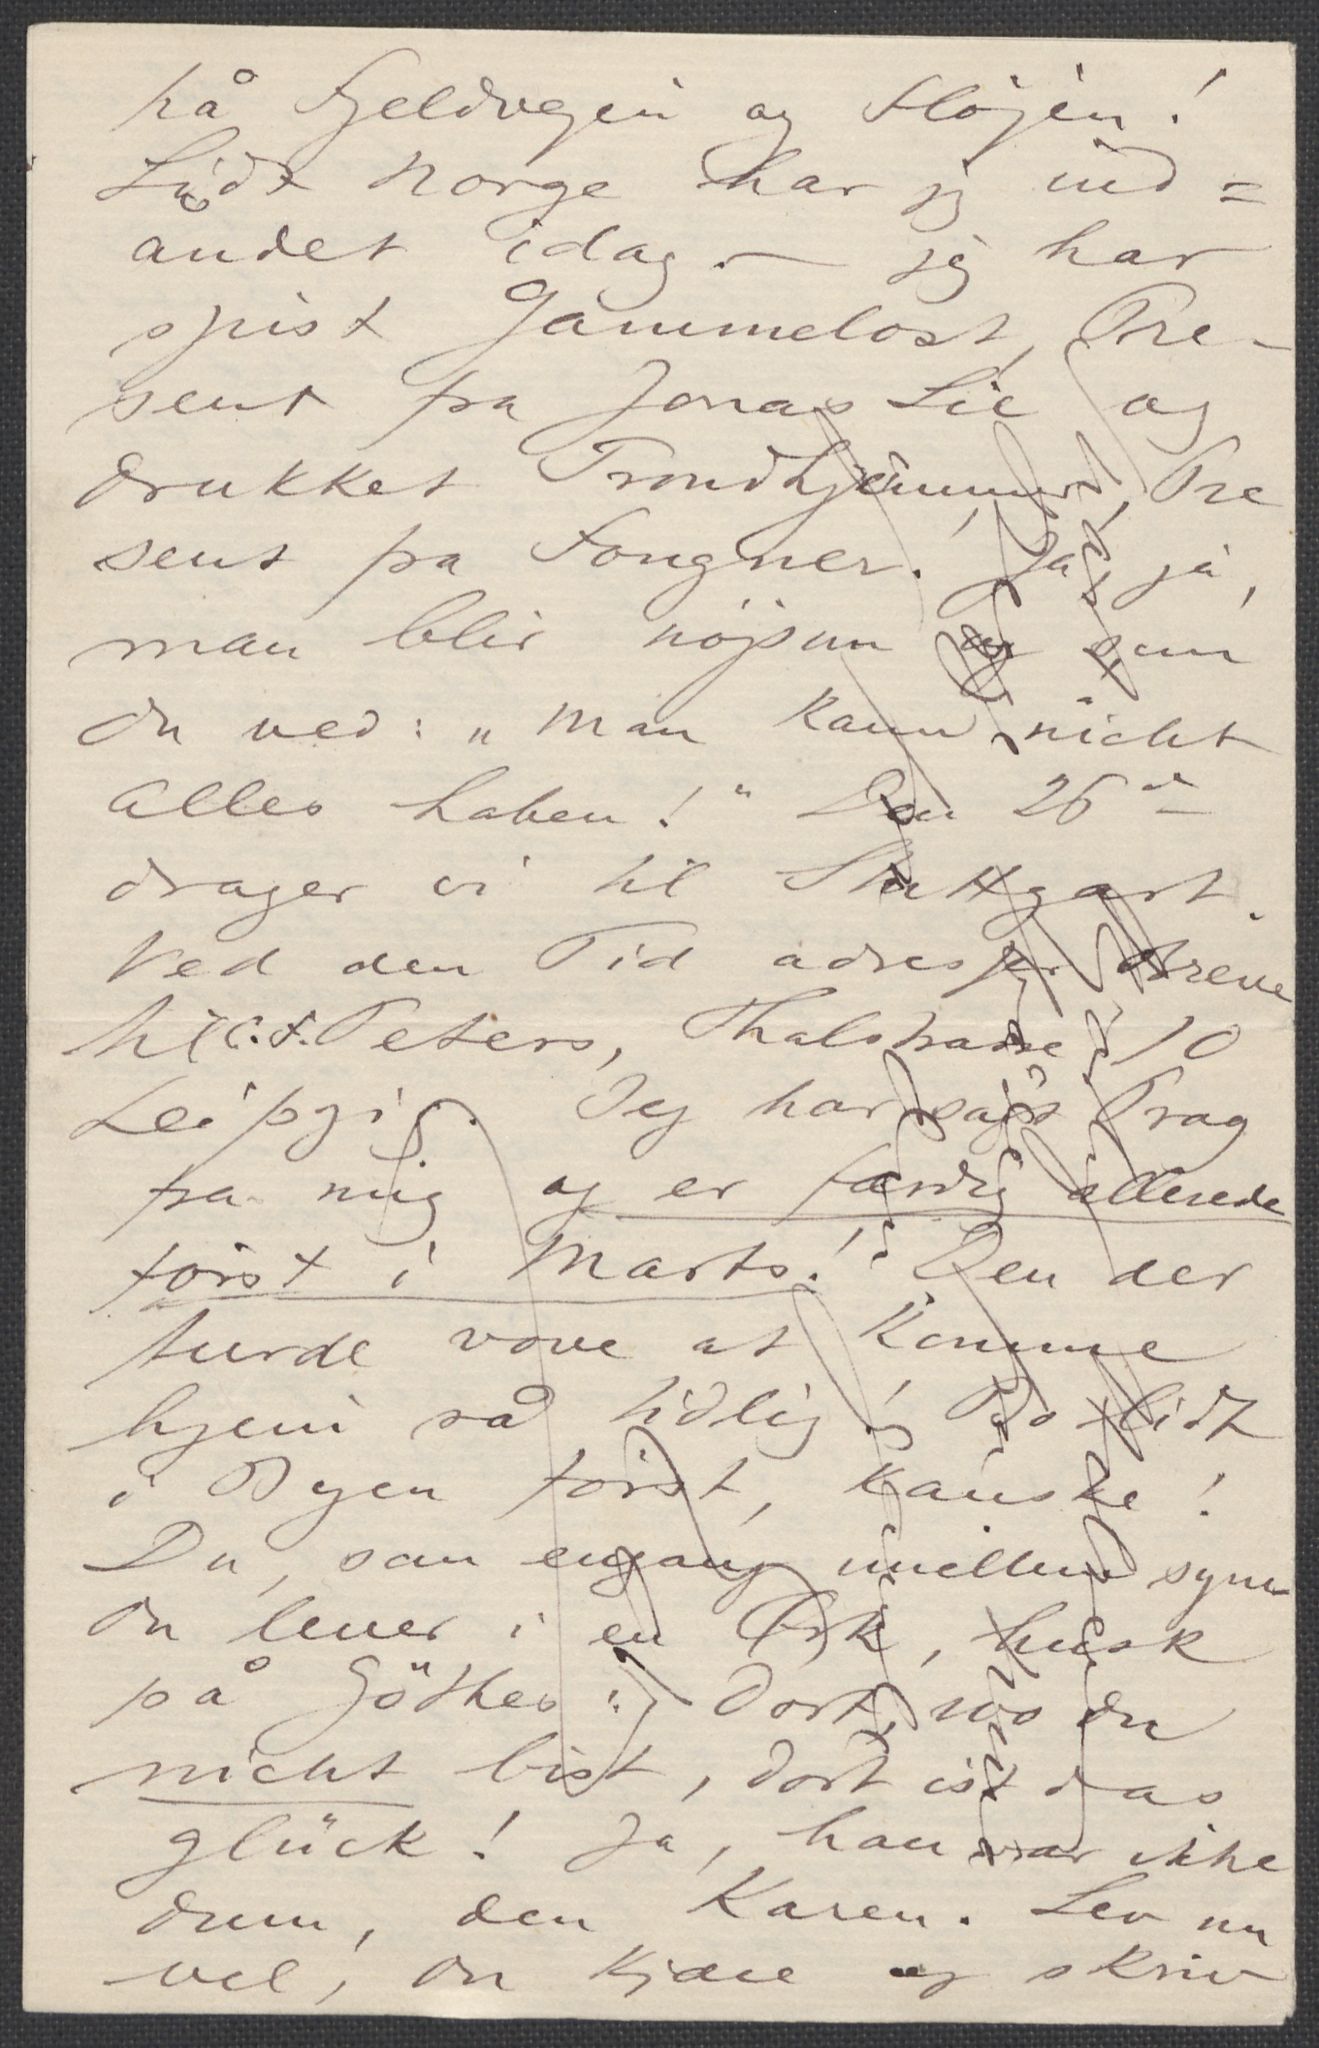 på Fjeldvejen og Fløjen!
Lidt Norge har jeg ind=
åndet idag. — jeg har
spist Gammelost, Pre-
sent fra Jonas Lie og
drukket Trondhjemmer, Pre
sent fra Fougner. Ja, ja,
man blir nøjsom som
du ved: „Man kann nicht
alles haben!" Den 26de
drager vi til Stuttgart.
Ved den Tid adresser Breve
til C. F. Peters, Thalstrasse 10
Leipzig. Jeg har sagt Prag
fra mig og er færdig allerede
først i Marts! Den der
turde vove at komme
hjem så tidlig! Bo lidt
i Byen først, kanske!
Du, som engang imellem synes
du lever i en Ørk, husk
på Göthes: „Dort, wo du
nicht bist, dort ist das
Glück! Ja, han var ikke
dum, den Karen. Lev nu
vel, du kjære og skriv